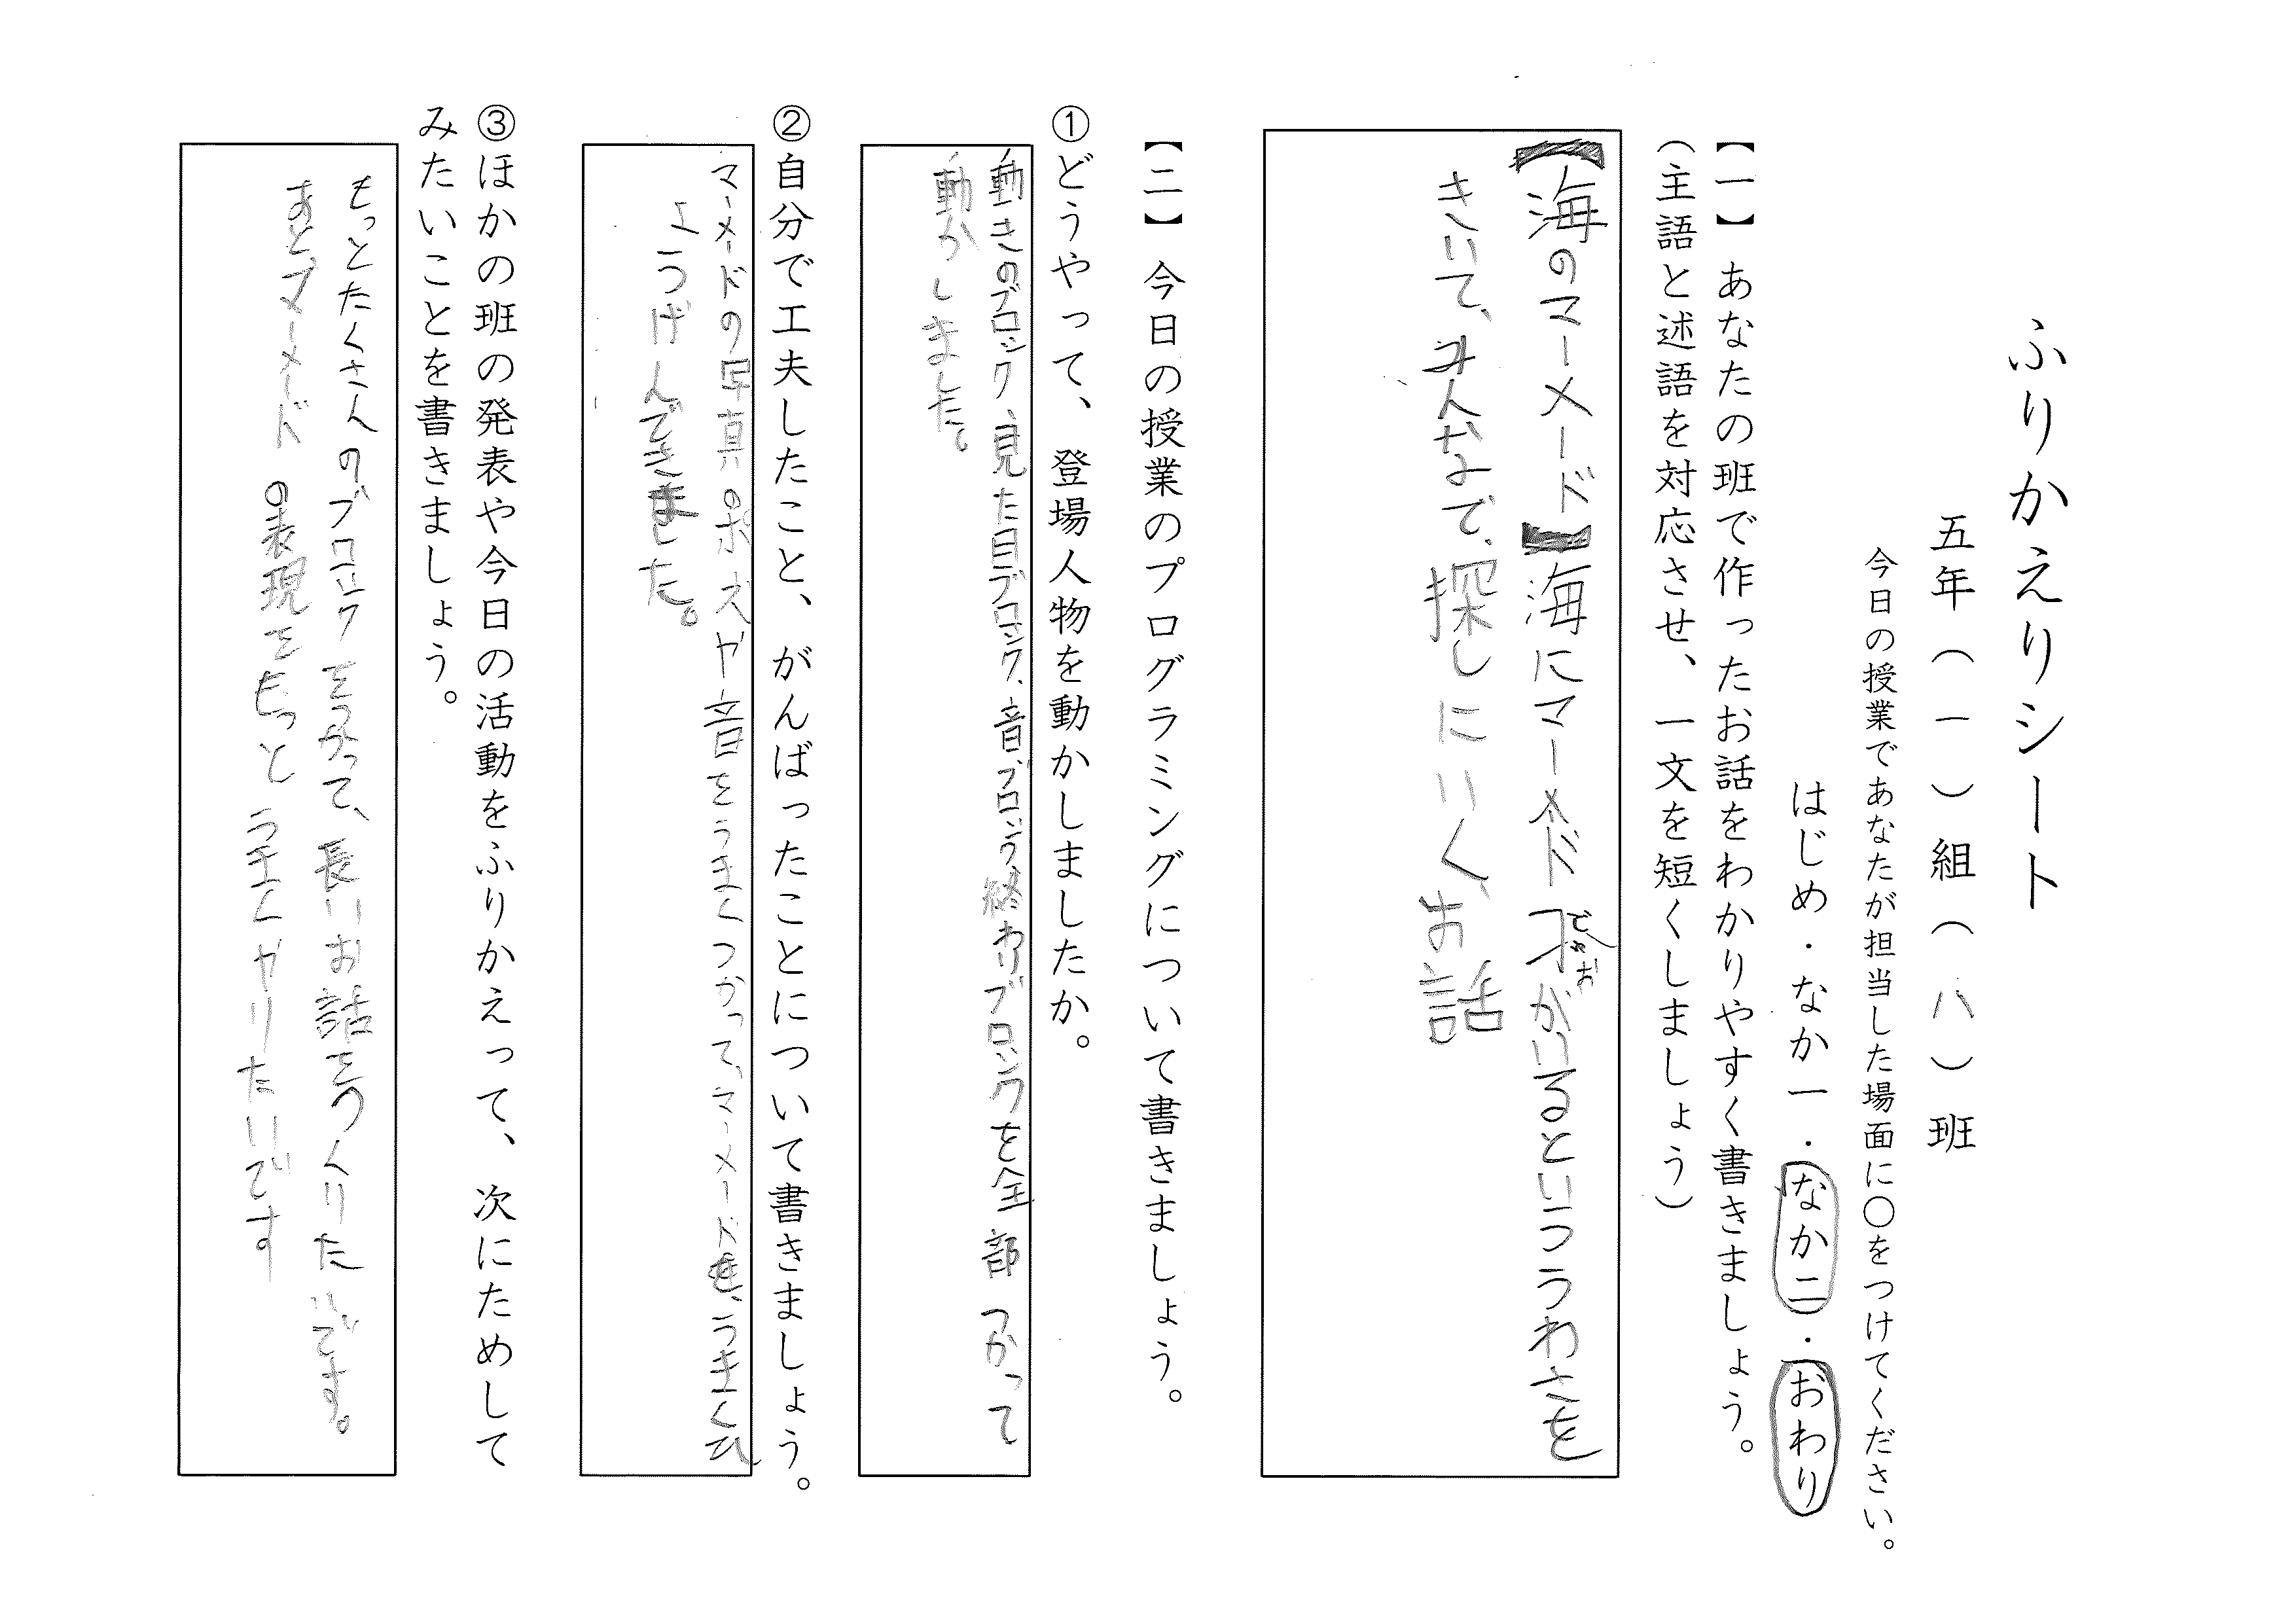 ふりかえりシート
五年（一）組（八）班
今日の授業であなたが担当した場面に〇をつけてください。
はじめ・なか一・なか二・おわり
【一】あなたの班で作ったお話をわかりやすく書きましょう。
（主語と述語を対応させ、一文を短くしましょう）
【海のマーメード】海にマーメードがいるといううわさを
きいて、みんなで、探しにいく、お話
【二】今日の授業のプログラミングについて書きましょう。
①どうやって、登場人物を動かしましたか。
動きのブロック、見た目ブロック、音ブロック、終わりブロックを全部つかって
動かしました。
②自分で工夫したこと、がんばったことについて書きましょう。
マーメードの写真のポーズや音をうまくつかって、マーメードを、うまくひ
ょうげんできました。
③ほかの班の発表や今日の活動をふりかえって、次にためして
みたいことを書きましょう。
もっとたくさんのブロックをつかって、長いお話をつくりたいです。
あと、マーメードの表現をもっとうまくやりたいです